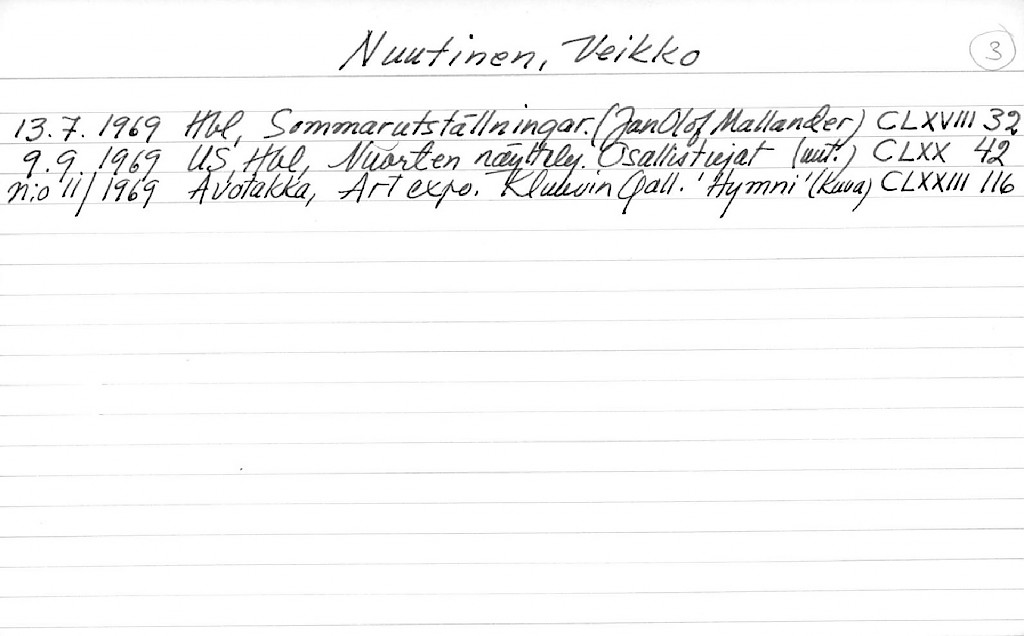 Nuutinen, Veikko 3
13.7. 1969 Hbl, Sommarutställningar. (JanOlof Mallander) CLXVIII 32
9.9. 1969 US, Hbl, Nuorten näyttely. Osallistujat (uut.) CLXX 42
n:o 11/1969 Avotakka, Art expo. Kluuvin Gall. 'Hymni' (Kuva) CLXXIII 116